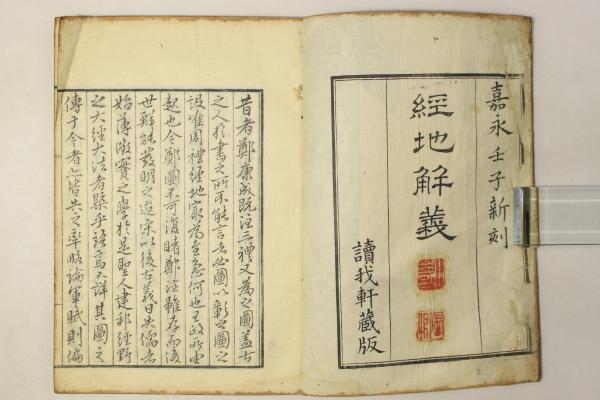 嘉永壬子新刻
經地解義
讀我軒藏版
昔者鄭康成既注三禮又為之圖盖古
之人於書之所不能言者必圖以彰之圖之
設唯周禮經地家為至急何也王政所由
起也今鄭圖不可復睹鄭注雖存而後
世鮮能發明之迨宋以後古義日失儒者
始薄漢賓之學於是聖人建邦經野
之大經大法者槩乎語焉不詳其圖之
傳于今者亦皆失之率略論軍賦則偏